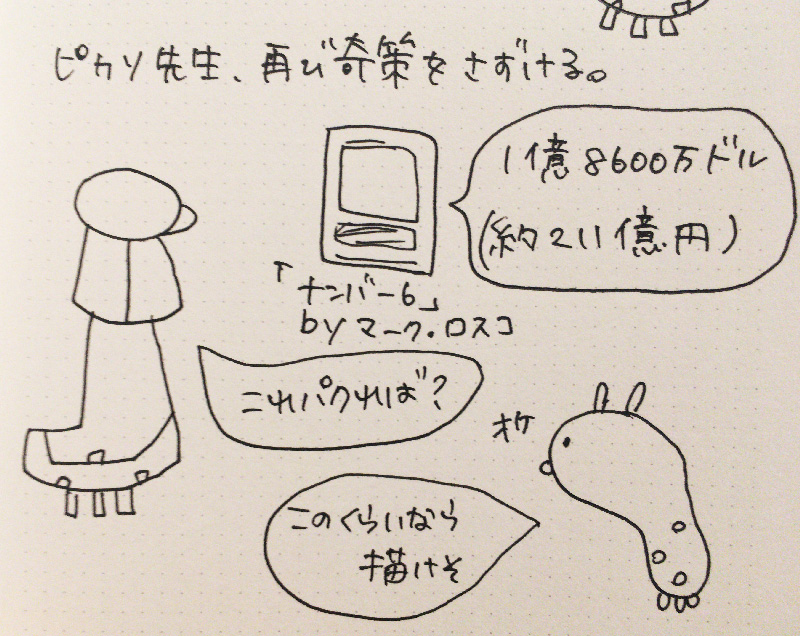 ピカソ先生、再び奇策をさずける。
1億8600万ドル
(約211億円)
「ナンバー6」
by マーク・ロスコ
これパクれば?
オケ
このくらいなら
描けそ